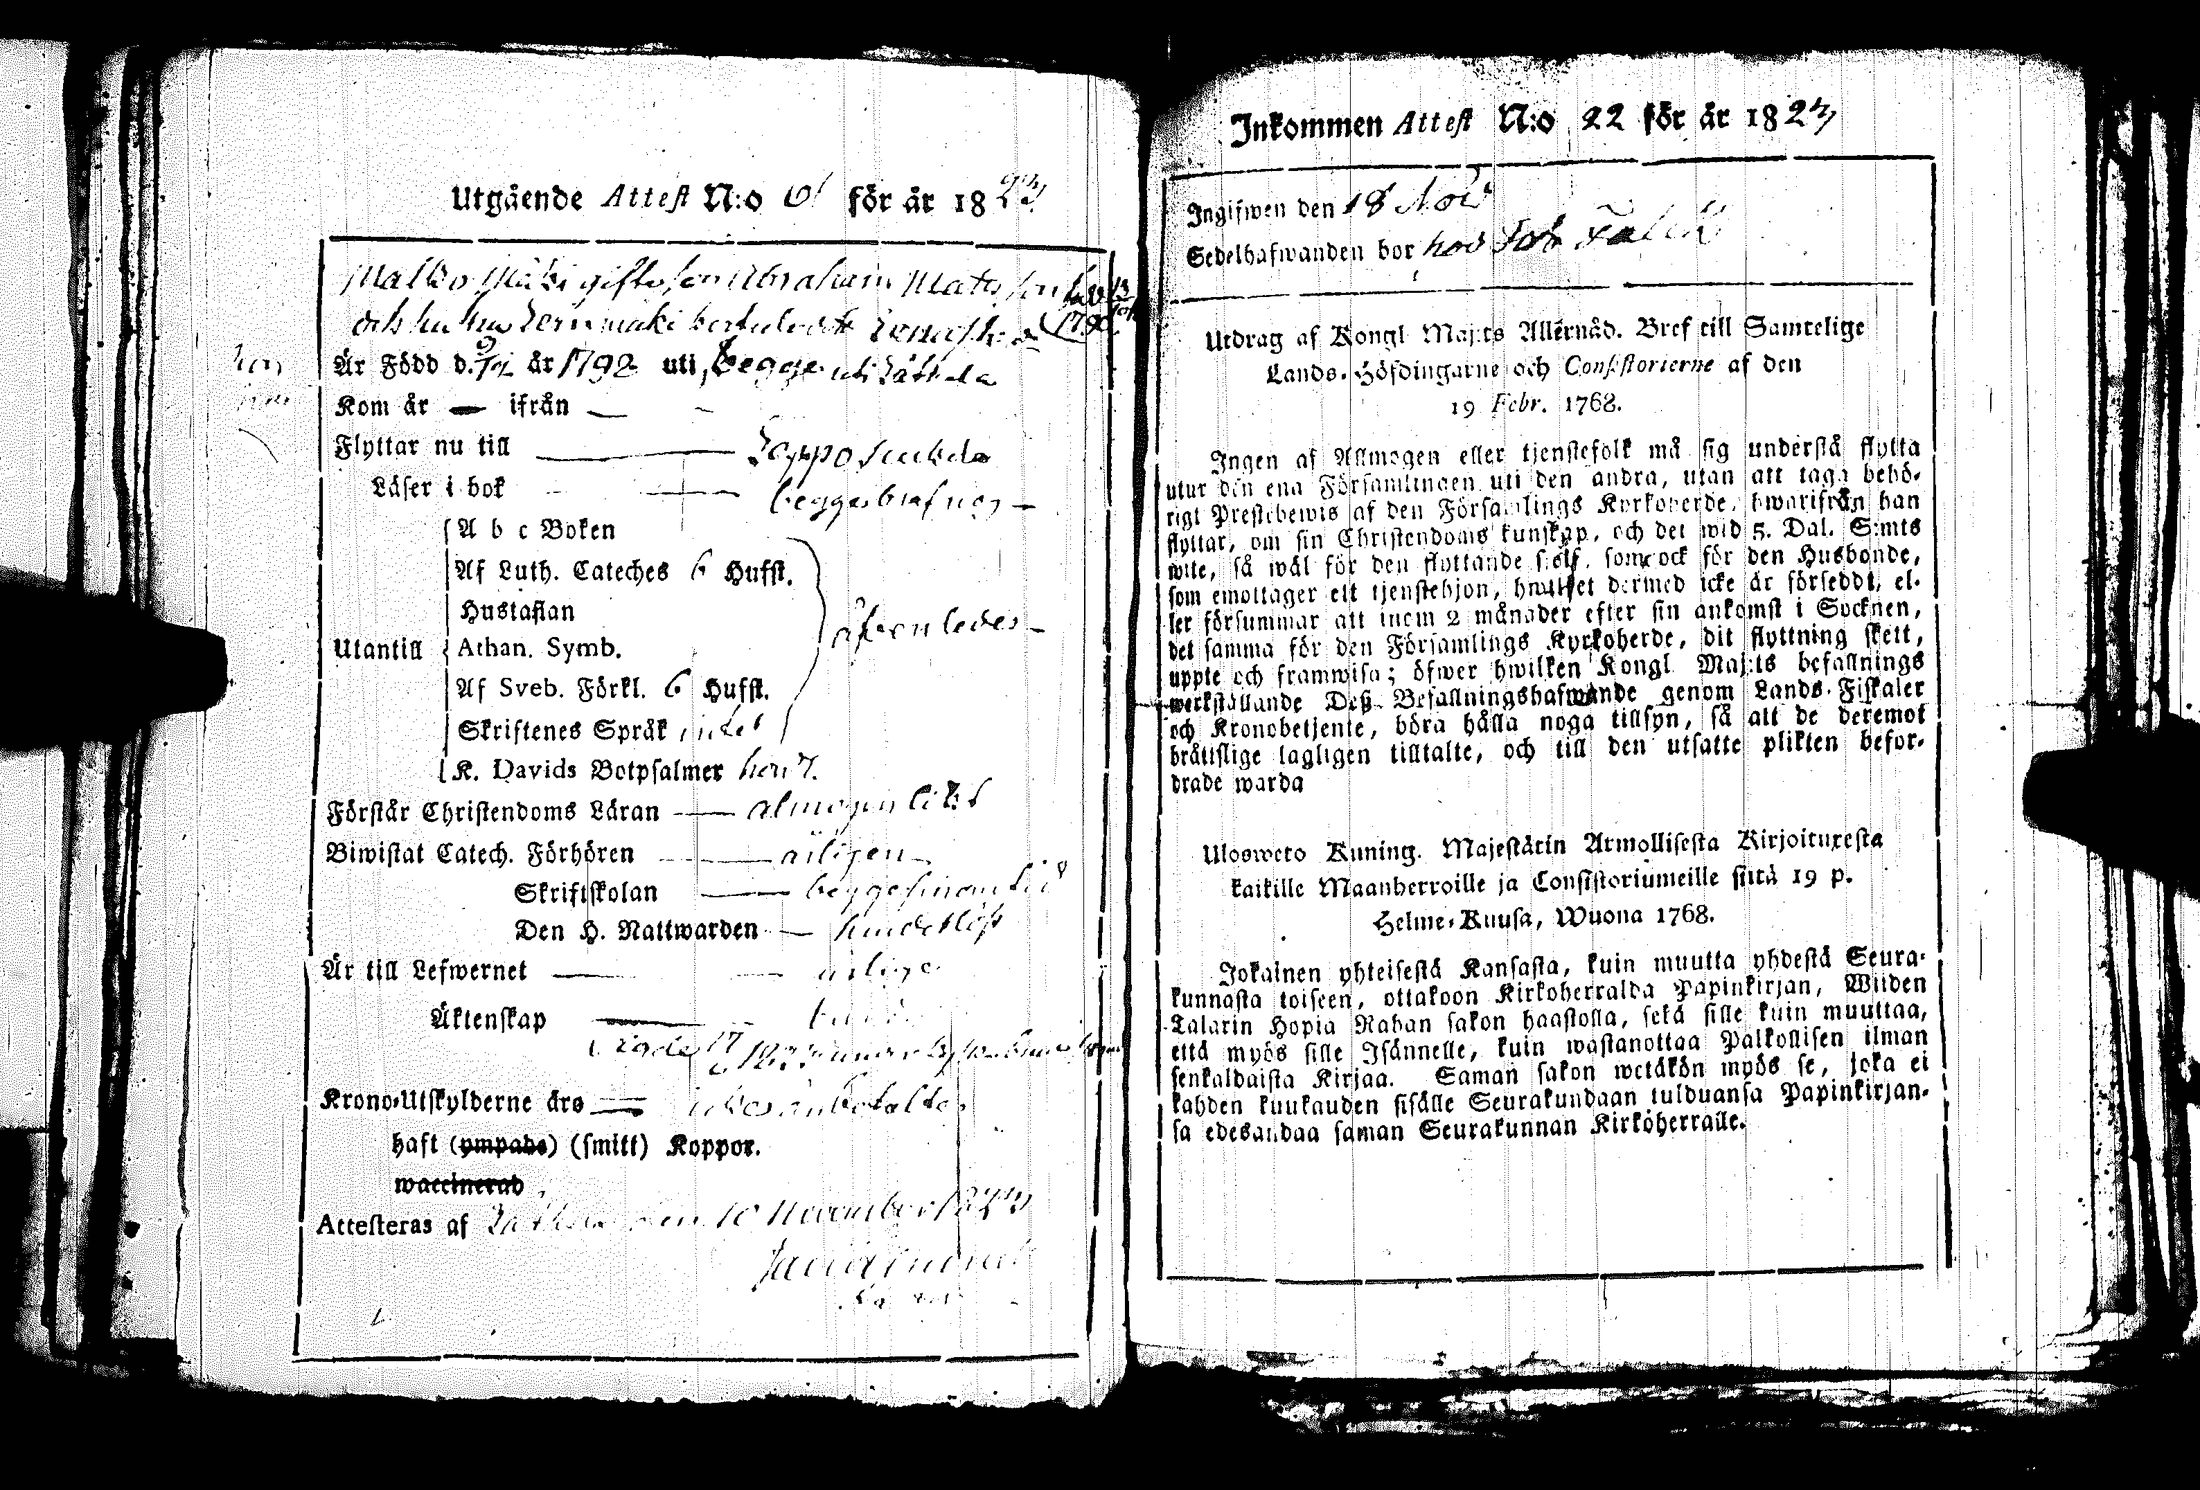 Utgående Attest N:o för år 1823
Matts Mäki gifte son Abraham Mats son
och hustru
Är Född d. år 1792 uti begge uti
Kom år — ifrån —
Flyttar nu till — Lappo Sockn
Läser i bok — begge braf nog —
A b c Boken
Af Luth. Cateches 6 Hufst.
Hustaflan
äfvenledes —
Utantill Athan. Symb.
Af Sveb. Förkl. 6 Hufst.
Skriftenes Språk intet
K. Davids Botpsalmer hon 7.
Förstår Christendoms Läran — almogen likt
Biwistat Catech. Förhören — ärligen
Skriftskolan — begge sin tid
Den H. Nattwarden — hinderlöst
Är till Lefwernet — ärlige
Äktenskap —
Krono-Utskylderne äro — betalte
haft (ympade) (smitt) Koppor.
waccinerad
Attesteras af den 10 November 1823
Inkommen Attest N:o 22 för år 1823
Ingifwen den 18 Nov
Sedelhafwanden bor hos
Utdrag af Kongl Maj:ts Allernåd. Bref till Samtelige
Lands-Höfdingarne och Consistorierne af den
19 Febr. 1768.
Ingen af Allmogen eller tjenstefolk må sig understå flytta
utur den ena Församlingen uti den andra, utan att taga behö-
rigt Prestebewis af den Församlings Kyrkoherde, hwarifrån han
flyttar, om sin Christendoms kunskap, och det wid 5. Dal. S:mts
wite, så wäl för den flyttande sielf, som ock för den Husbonde,
som emottager ett tjenstehjon, hwilket dermed icke är förseddt, el-
ler försummar att inom 2 månader efter sin ankomst i Socknen,
det samma för den Församlings Kyrkoherde, dit flyttning skett,
uppte och framwisa; öfwer hwilken Kongl Maj:ts befallnings
werkställande Deß Befallningshafwande genom Lands-Fiskaler
och Kronobetjente, böra hålla noga tillsyn, så att de deremot
bråttslige lagligen tilltalte, och till den utsatte plikten befor-
drade warda
Ulosweto Kuning. Majestätin Armollisesta Kirjoituxesta
kaikille Maanherroille ja Consistoriumeille siitä 19 p.
Helme-Kuusa, Wuona 1768.
Jokainen yhteisestä Kansasta, kuin muutta yhdestä Seura-
kunnasta toiseen, ottakoon Kirkoherralda Papinkirjan, Wiiden
Talarin Hopia Rahan sakon haastolla, sekä sille kuin muuttaa,
että myös sille Isännelle, kuin wastanottaa Palkollisen ilman
senkaldaista Kirjaa. Saman sakon wetäkön myös se, joka ei
kahden kuukauden sisälle Seurakundaan tulduansa Papinkirjan-
sa edesandaa saman Seurakunnan Kirkoherralle.